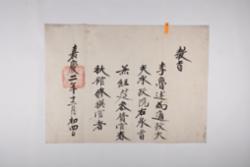 教旨
李魯述爲通政大
夫承政院右承旨
兼經筵參贊官春
秋館修撰官者
嘉慶二年十二月初四日